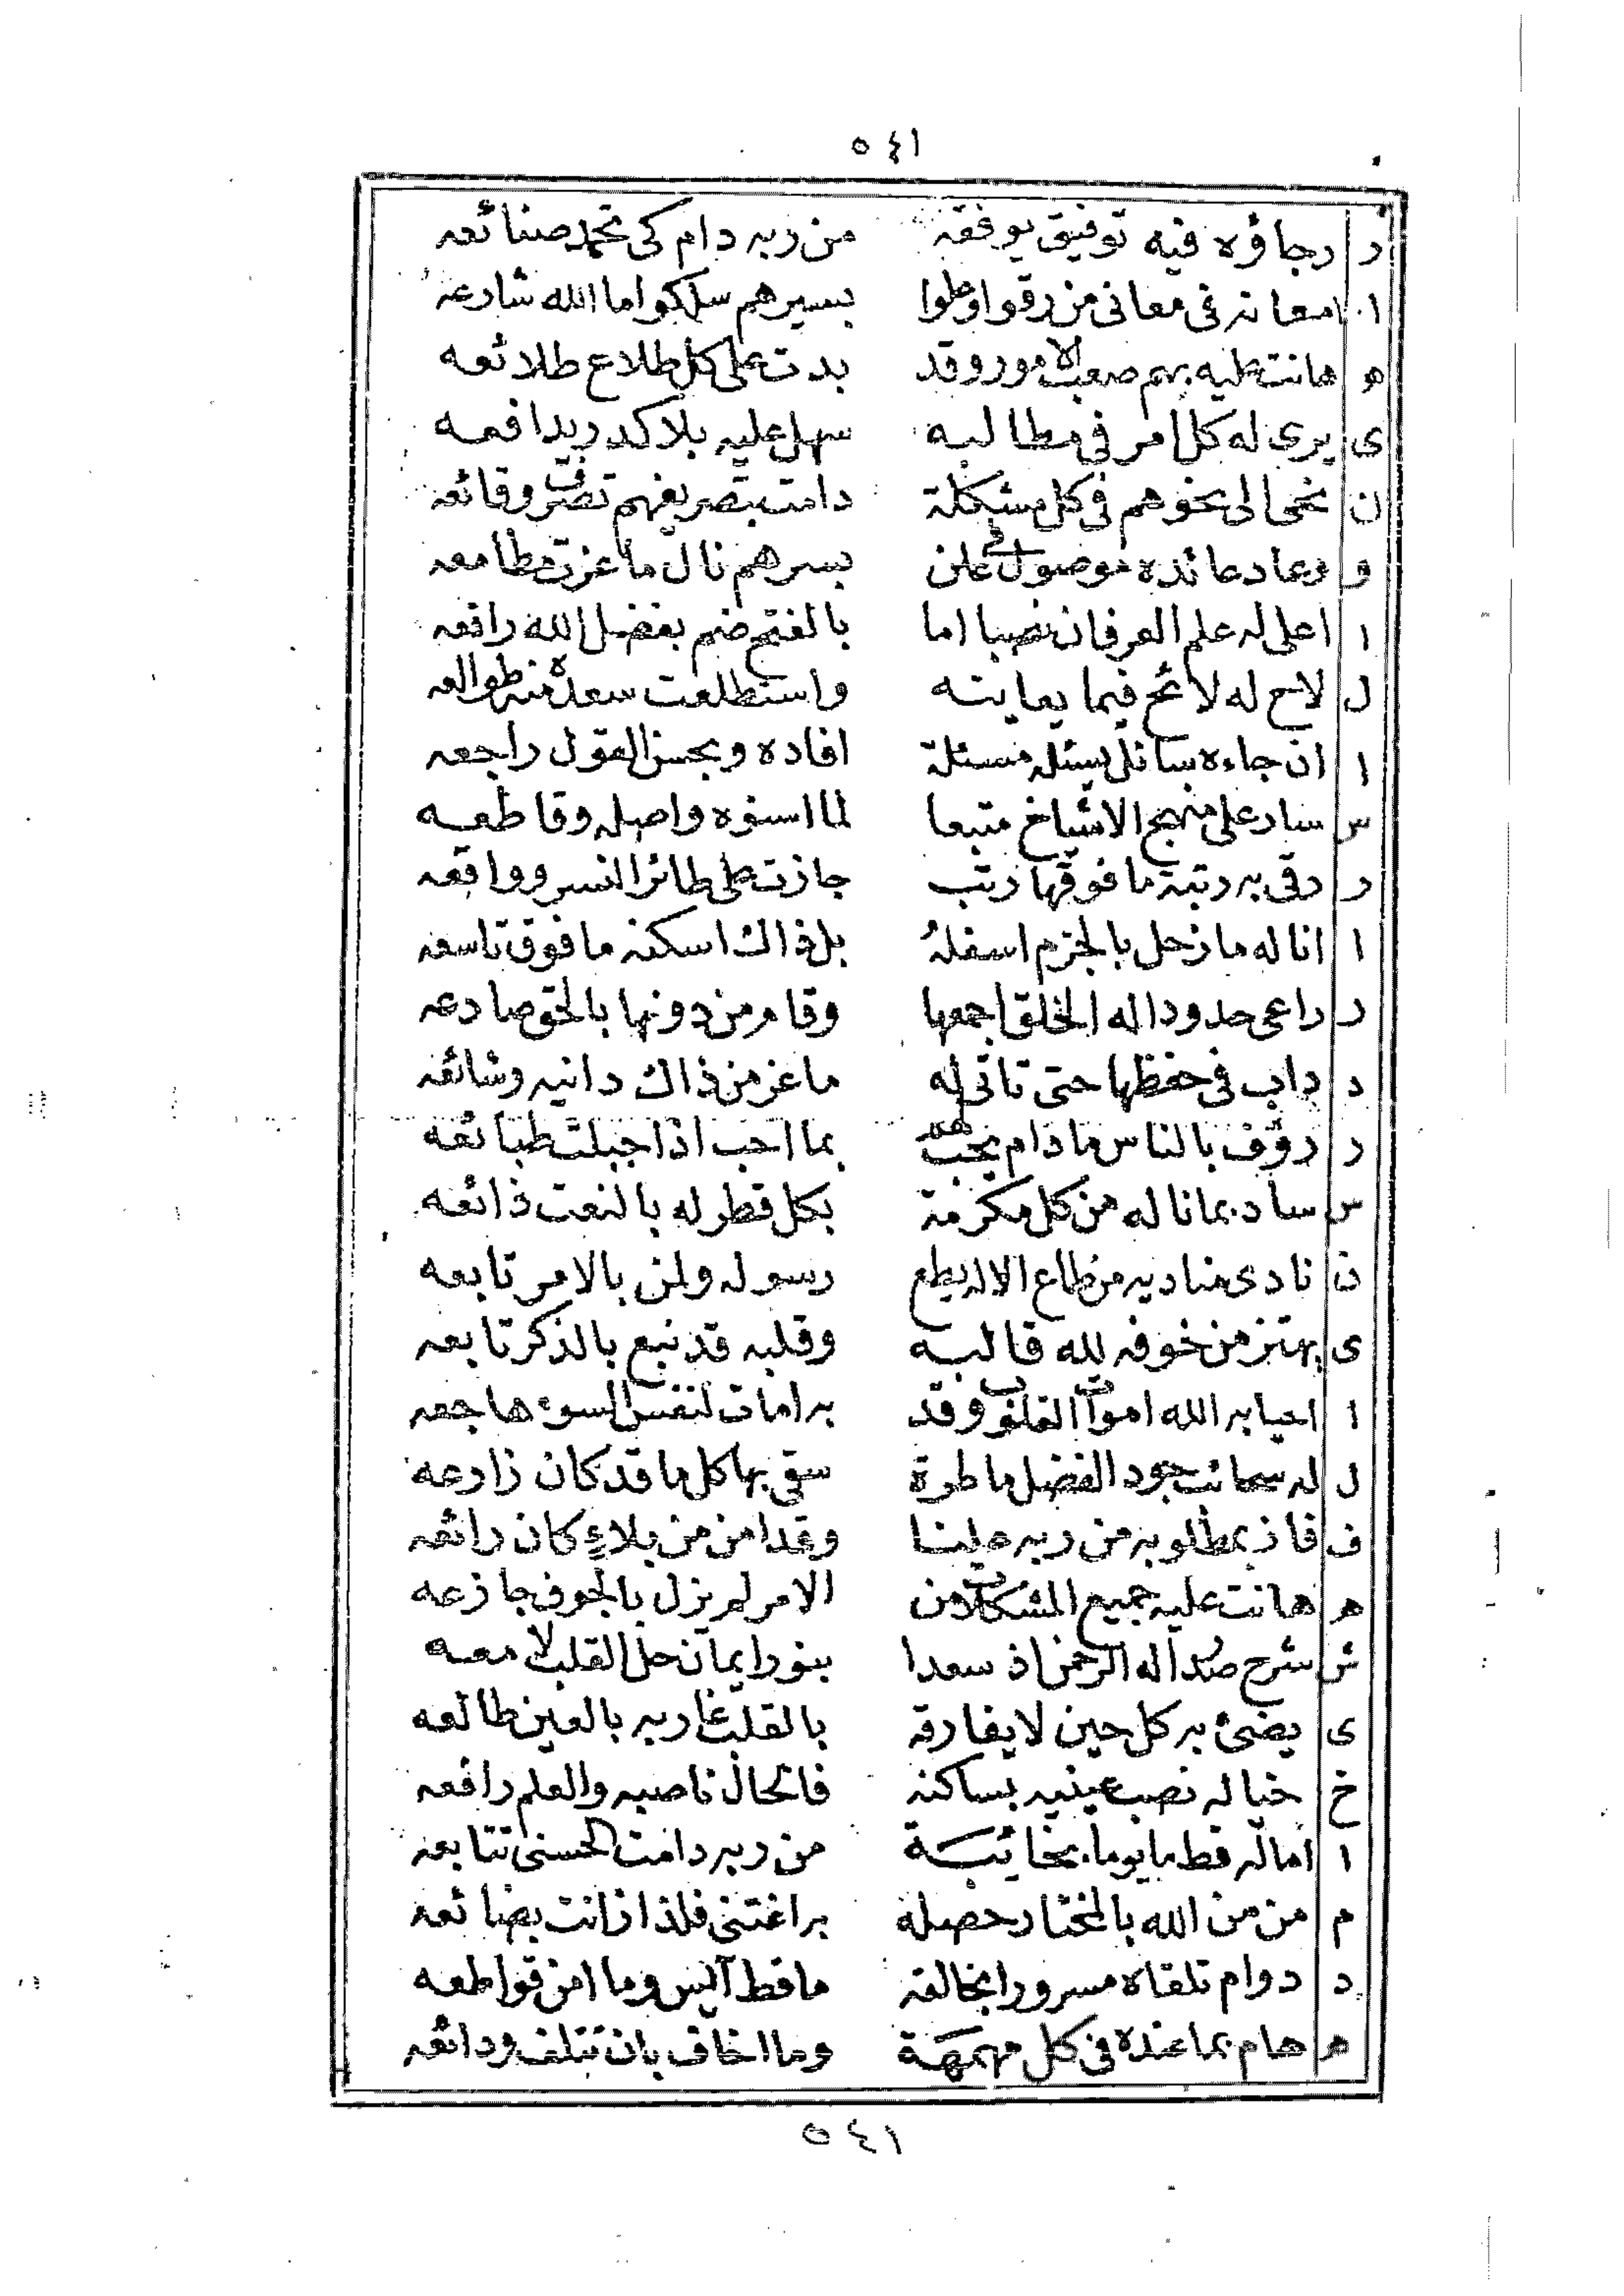 ١٤٥
ر رجاؤه فيه توفيق يوفقه من ربه دام كى تحمد صنائعه
ا معانه فى معانى من رقوا وعلوا بسيرهم سلكوا ما الله شارعه
ه هانت عليه بهم صعب الامور وقد بدت على كل طلاع طلائعه
ى يرى له كل امر فى مطالبه سهل عليه بلا كد يدافعه
ن نحى الى نحوهم فى كل مشكلة دامت بتصريفهم تصرف وقائعه
و وعاد عائده موصول فى علن بسرهم نال ما عزت مطامعه
ا اعلى له علم العرفان نصبا اما بالفتح ضم بفضل الله رافعه
ل لاح له لائح فيما يعاينه واستطلعت سعده منه طوالعه
ا ان جاءه سائل يسئله مسئلة افاده وبحسن القول راجعه
س سار على منهج الاشياخ متبعا لما اسنوه واصله وقاطعه
ر رقى به رتبة ما فوقها رتب جازت على طائر النسر وواقعه
ا اناله ما زحل بالجزم اسفله بل ذاك اسكنه ما فوق تاسعه
ر راعى حدود اله الخلق اجمعها وقام من دونها بالحق صادعه
د داب فى حفظها حتى تاتى له ما عز من ذاك دانيه وشائعه
ر رؤف بالناس ما دام بما احب اذا جبلت طبائعه
س ساد بما ناله من كل مكرمة بكل قطر له بالنعت ذائعه
ن نادى مناديه من طاع الاله يطع رسوله ولمن بالامر تابعه
ى يهتز من خوفه لله قالبه وقلبه قد نبع بالذكر تابعه
ا احيا به الله اموات القلوب وقد به امات لنفس السوء هاجعه
ل له سحائب جود الفضل ماطرة سقى بها كل ما قد كان زارعه
ف فاز بمطلوبه من ربه علنا وقد امن من بلاءٍ كان رائعه
ه هانت عليه جميع المشكلات من الامر لم يزل بالجوف جازعه
ش شرح صدرا له الرحمن اذ سعدا بنور ايمان حل القلب لامعه
ى يضئ به كل حين لا يفارقه بالقلب غاربه بالعين طالعه
خ خياله نصب عينيه بساكنه فالحال ناصبه والعلم رافعه
ا اماله قط ما يوما بخائبة من ربه دامت الحسنى تتابعه
م من من الله بالمختار حصله به اغتنى فلذا زانت بضائعه
د دوام تلقاه مسرورا بخالقه ما قط آليس وما امن قواطعه
ه هام بما عنده فى كل مهمهة وما اخاف بان تتلف ودائعه
١٤٥